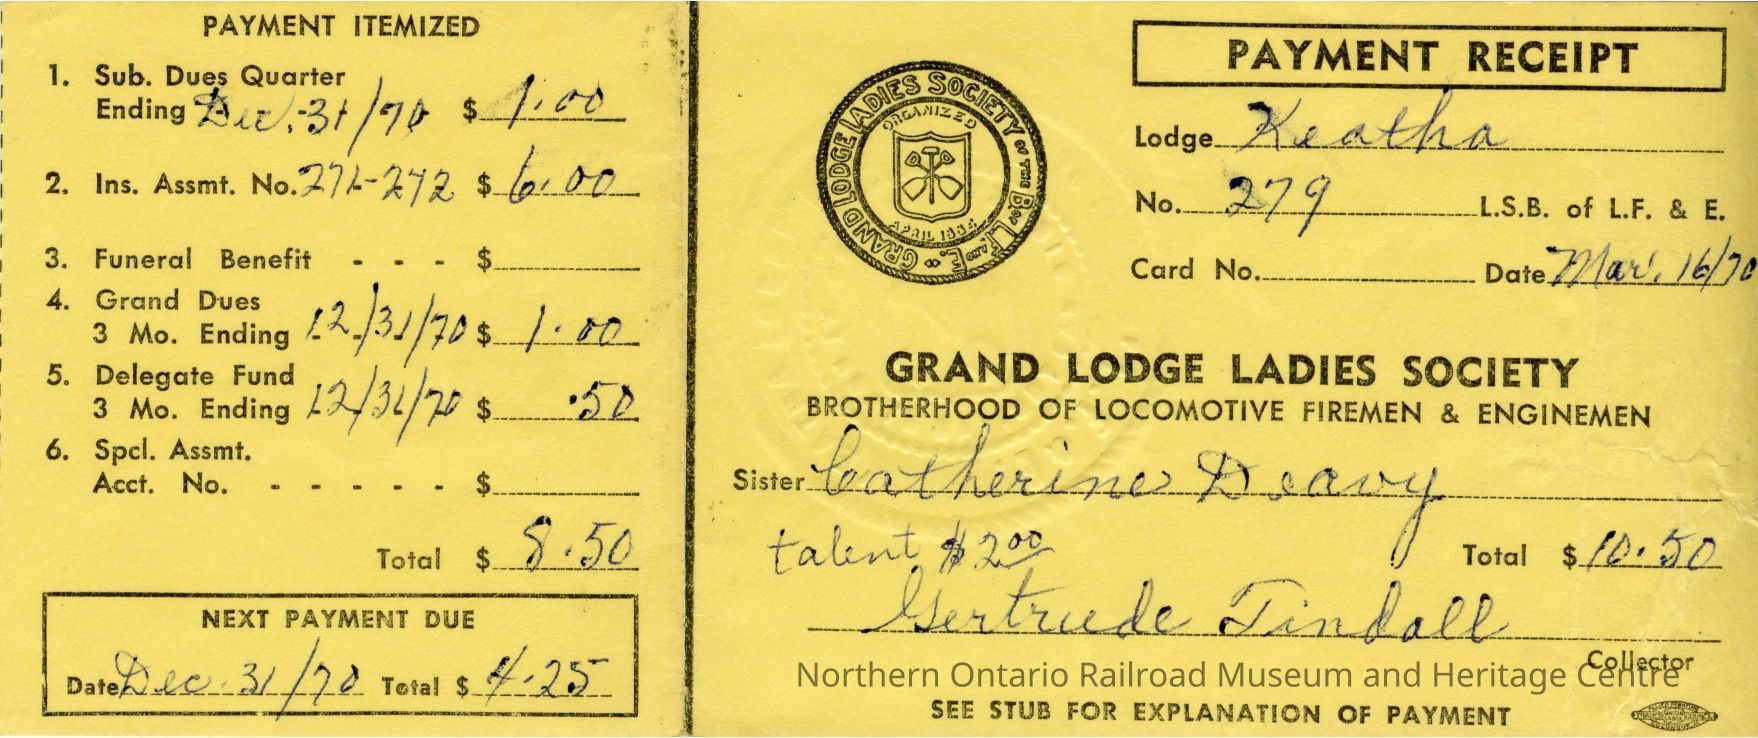 PAYMENT ITEMIZED
1. Sub. Dues Quarter
Ending Dec. 31/70 $ 1.00
2. Ins. Assmt. No. 271-272 $ 6.00
3. Funeral Benefit - - - $
4. Grand Dues
3 Mo. Ending 12/31/70 $ 1.00
5. Delegate Fund
3 Mo. Ending 12/31/70 $ .50
6. Spcl. Assmt.
Acct. No. - - - - - $
Total $ 8.50
NEXT PAYMENT DUE
Date Dec. 31/70 Total $ 4.25
GRAND LODGE LADIES SOCIETY OF THE B. OF L.F. AND E.
ORGANIZED
APRIL 1884
PAYMENT RECEIPT
Lodge Keatha
No. 279 L.S.B. of L.F. & E.
Card No. Date Mar. 16/70
GRAND LODGE LADIES SOCIETY
BROTHERHOOD OF LOCOMOTIVE FIREMEN & ENGINEMEN
Sister Catherine Deavy
talent $2.00 Total $ 10.50
Gertrude Tindall
Collector
Northern Ontario Railroad Museum and Heritage Centre
SEE STUB FOR EXPLANATION OF PAYMENT